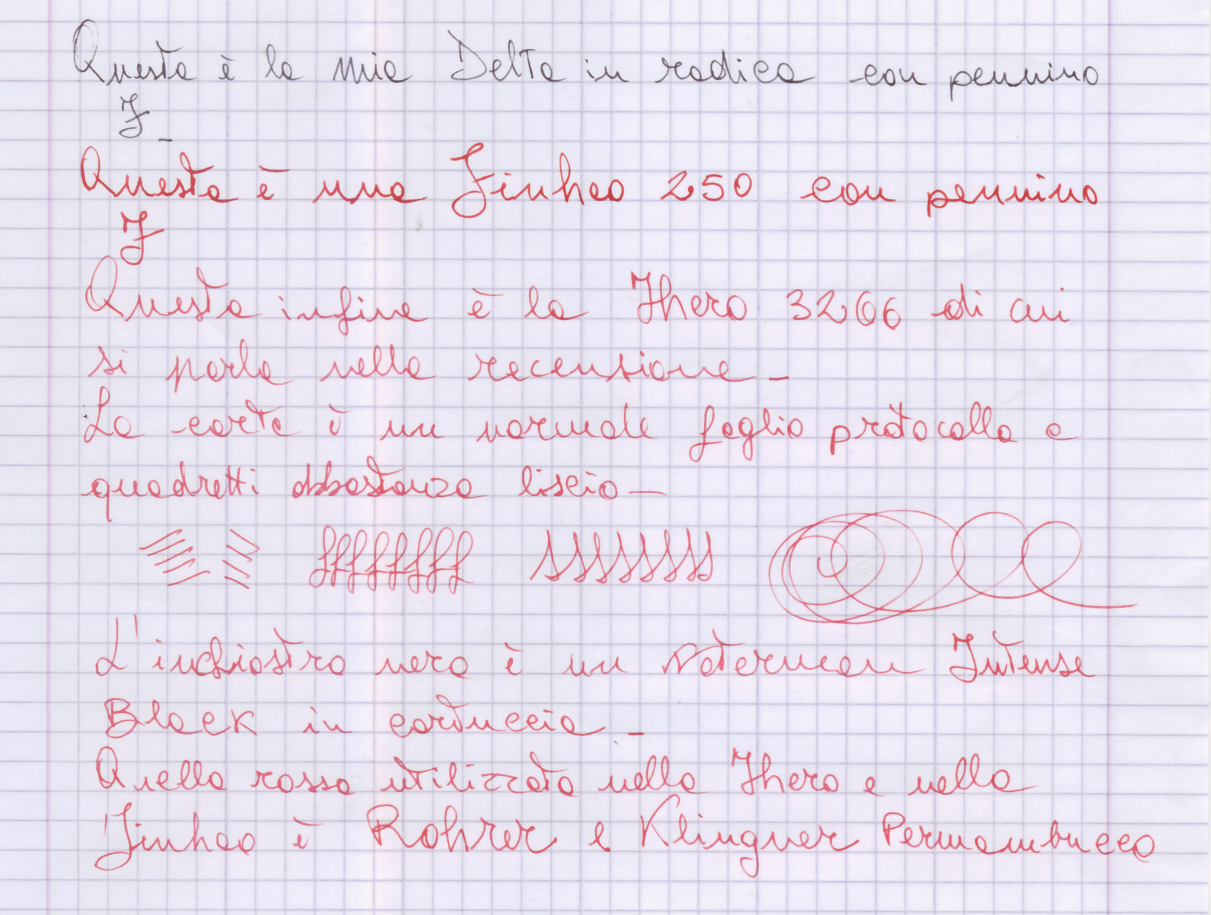 Questa è la mia Delta in radica con pennino
F
Questa è una Jinhao 250 con pennino
F
Questa infine è la Jhero 3266 di cui
si parla nella recensione
La carta è un normale foglio protocollo a
quadretti abbastanza liscio
L'inchiostro nero è un Waterman Intense
Black in cartuccia
Quello rosso utilizzato nella Jhero e nella
Jinhao è Rohrer e Klingner Permambucco